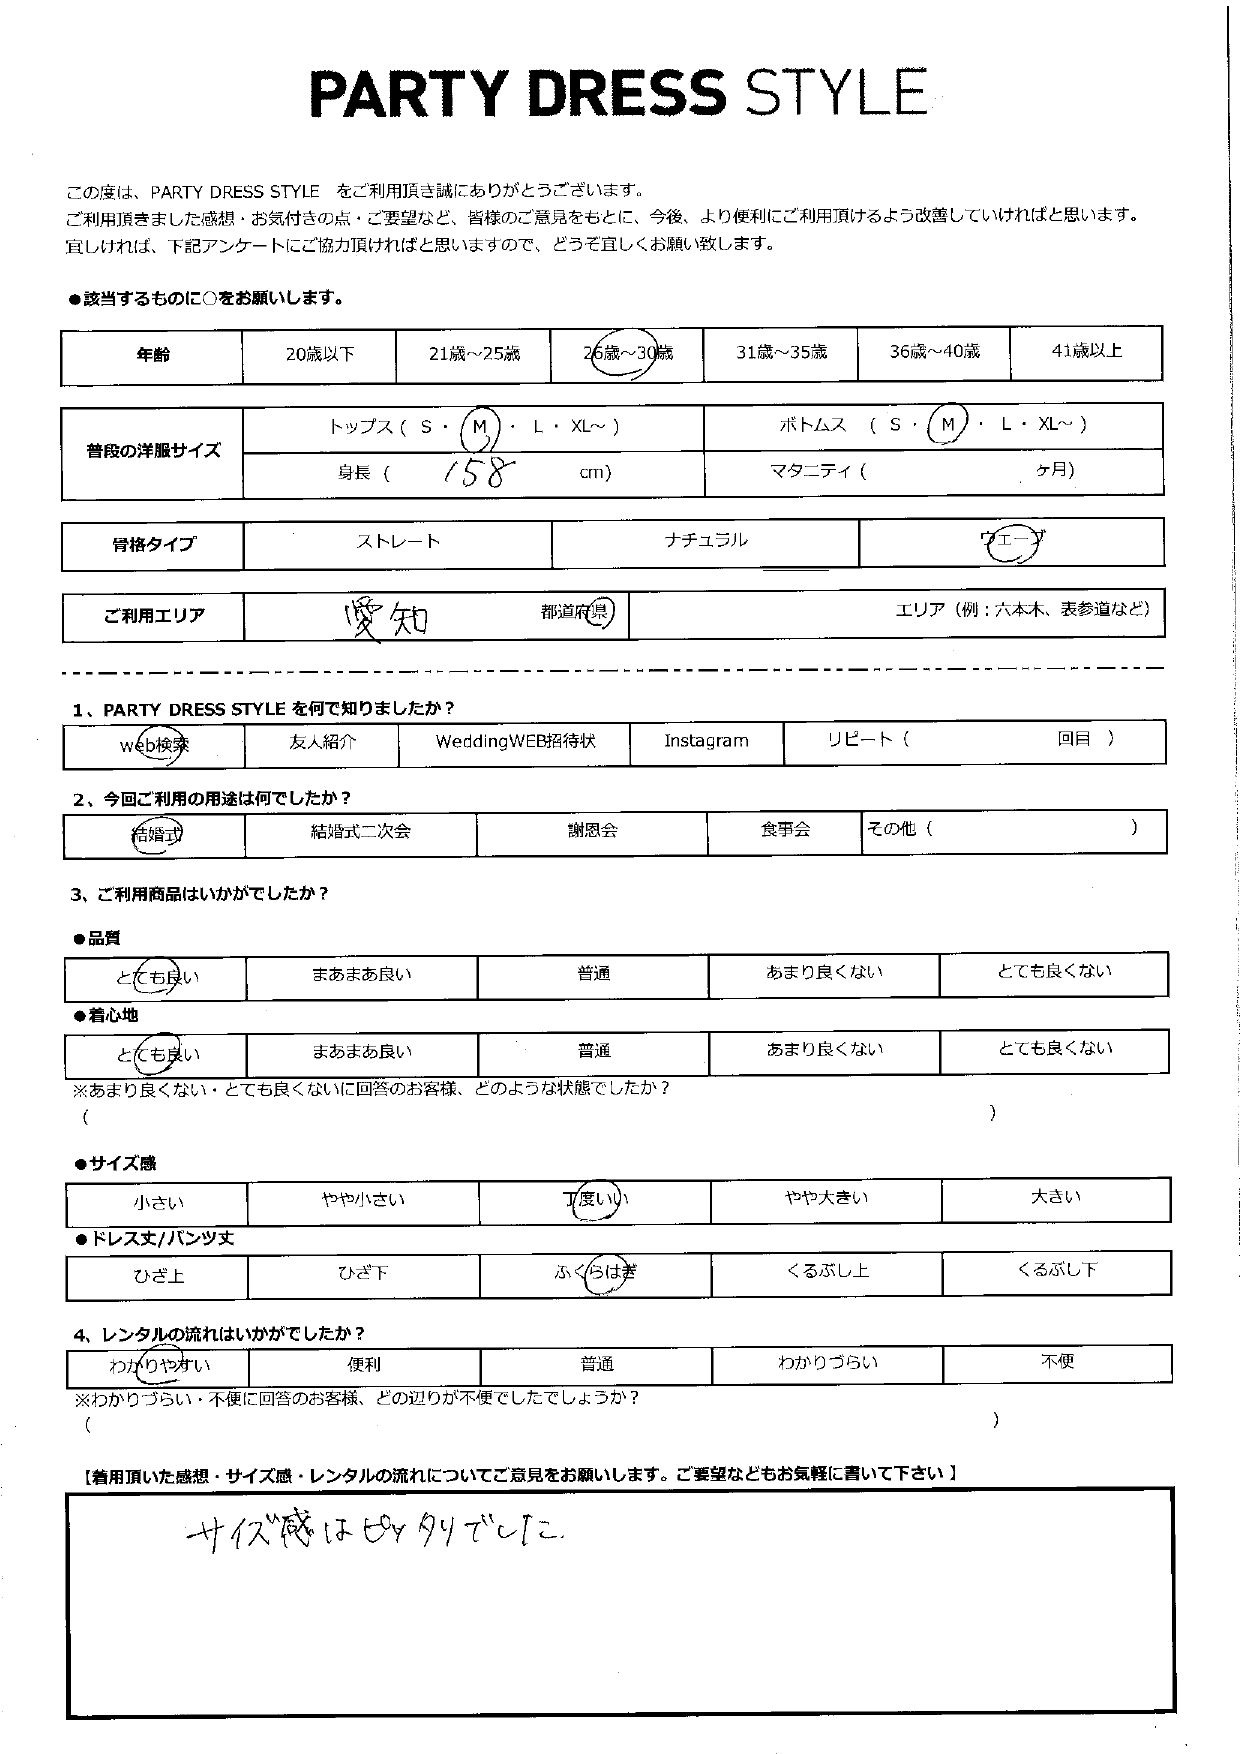 PARTY DRESS STYLE
この度は、PARTY DRESS STYLE をご利用頂き誠にありがとうございます。
ご利用頂きました感想・お気付きの点・ご要望など、皆様のご意見をもとに、今後、より便利にご利用頂けるよう改善していければと思います。
宜しければ、下記アンケートにご協力頂ければと思いますので、どうぞ宜しくお願い致します。
●該当するものに○をお願いします。
年齢 20歳以下 21歳～25歳 26歳～30歳 31歳～35歳 36歳～40歳 41歳以上
普段の洋服サイズ
トップス ( S ・ M ・ L ・ XL～ ) ボトムス ( S ・ M ・ L ・ XL～ )
身長 ( 158 cm) マタニティ ( ヶ月)
骨格タイプ ストレート ナチュラル ウェーブ
ご利用エリア 愛知 都道府県 エリア（例：六本木、表参道など）
1、PARTY DRESS STYLE を何で知りましたか？
web検索 友人紹介 WeddingWEB招待状 Instagram リピート ( 回目 )
2、今回ご利用の用途は何でしたか？
結婚式 結婚式二次会 謝恩会 食事会 その他 ( )
3、ご利用商品はいかがでしたか？
●品質
とても良い まあまあ良い 普通 あまり良くない とても良くない
●着心地
とても良い まあまあ良い 普通 あまり良くない とても良くない
※あまり良くない・とても良くないに回答のお客様、どのような状態でしたか？
( )
●サイズ感
小さい やや小さい 丁度いい やや大きい 大きい
●ドレス丈/パンツ丈
ひざ上 ひざ下 ふくらはぎ くるぶし上 くるぶし下
4、レンタルの流れはいかがでしたか？
わかりやすい 便利 普通 わかりづらい 不便
※わかりづらい・不便に回答のお客様、どの辺りが不便でしたでしょうか？
( )
【着用頂いた感想・サイズ感・レンタルの流れについてご意見をお願いします。ご要望などもお気軽に書いて下さい 】
サイズ感はピッタリでした.